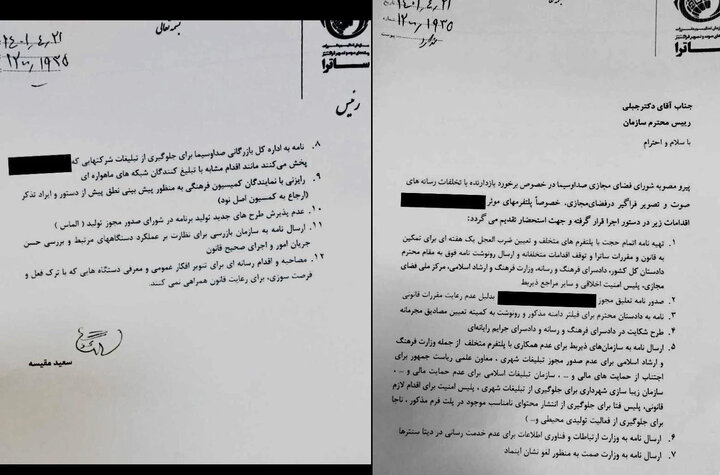 جناب آقای دکترجبلی
رییس محترم سازمان
با سلام و احترام
پیرو مصوبه شورای فضای مجازی صداوسیما در خصوص برخورد بازدارنده با تخلفات رسانه های
صوت و تصویر فراگیر درفضای‌مجازی، خصوصاً پلتفرمهای موثر
اقدامات زیر در دستور اجرا قرار گرفته و جهت استحضار تقدیم می گردد:
۱. تهیه نامه اتمام حجت با پلتفرم های متخلف و تعیین ضرب العجل یک هفته ای برای تمکین
به قانون و مقررات ساترا و توقف اقدامات متخلفانه و ارسال رونوشت نامه فوق به مقام محترم
دادستان کل کشور، دادسرای فرهنگ و رسانه، وزارت فرهنگ و ارشاد اسلامی، مرکز ملی فضای
مجازی، پلیس امنیت اخلاقی و سایر مراجع ذیربط
۲. صدور نامه تعلیق مجوز بدلیل عدم رعایت مقررات قانونی
۳. نامه به دادستان محترم برای فیلتر دامنه مذکور و رونوشت به کمیته تعیین مصادیق مجرمانه
۴. طرح شکایت در دادسرای فرهنگ و رسانه و دادسرای جرایم رایانه‌ای
۵. ارسال نامه به سازمان‌های ذیربط برای عدم همکاری با پلتفرم متخلف از جمله وزارت فرهنگ
و ارشاد اسلامی برای عدم صدور مجوز تبلیغات شهری، معاون علمی ریاست جمهور برای
اجتناب از حمایت های مالی و ...، سازمان تبلیغات اسلامی برای عدم حمایت مالی و ...،
سازمان زیبا سازی شهرداری برای جلوگیری از تبلیغات شهری، پلیس امنیت برای اقدام لازم
قانونی، پلیس فتا برای جلوگیری از انتشار محتوای نامناسب موجود در پلت فرم مذکور، ناجا
برای جلوگیری از فعالیت تولیدی محیطی و...)
۶. ارسال نامه به وزارت ارتباطات و فناوری اطلاعات برای عدم خدمت رسانی در دیتا سنترها
۷. ارسال نامه به وزارت صمت به منظور لغو نشان اینماد
بسمه تعالی
۱۴۰۱,۴,۲۱
۱۲۰۰,۱۹۳۵
ساترا
رئیس
۸. نامه به اداره کل بازرگانی صداوسیما برای جلوگیری از تبلیغات شرکتهایی که
پخش می‌کنند مانند اقدام مشابه با تبلیغ کنندگان شبکه های ماهواره ای
۹. رایزنی با نمایندگان کمیسیون فرهنگی به منظور پیش بینی نطق پیش از دستور و ایراد تذکر
(ارجاع به کمیسیون اصل نود)
۱۰. عدم پذیرش طرح های جدید تولید برنامه در شورای صدور مجوز تولید (الماس)
۱۱. ارسال نامه به سازمان بازرسی برای نظارت بر عملکرد دستگاههای مرتبط و بررسی حسن
جریان امور و اجرای صحیح قانون
۱۲. مصاحبه و اقدام رسانه ای برای تنویر افکار عمومی و معرفی دستگاه هایی که با ترک فعل و
فرصت سوزی، برای رعایت قانون همراهی نمی کنند.
سعید مقیسه